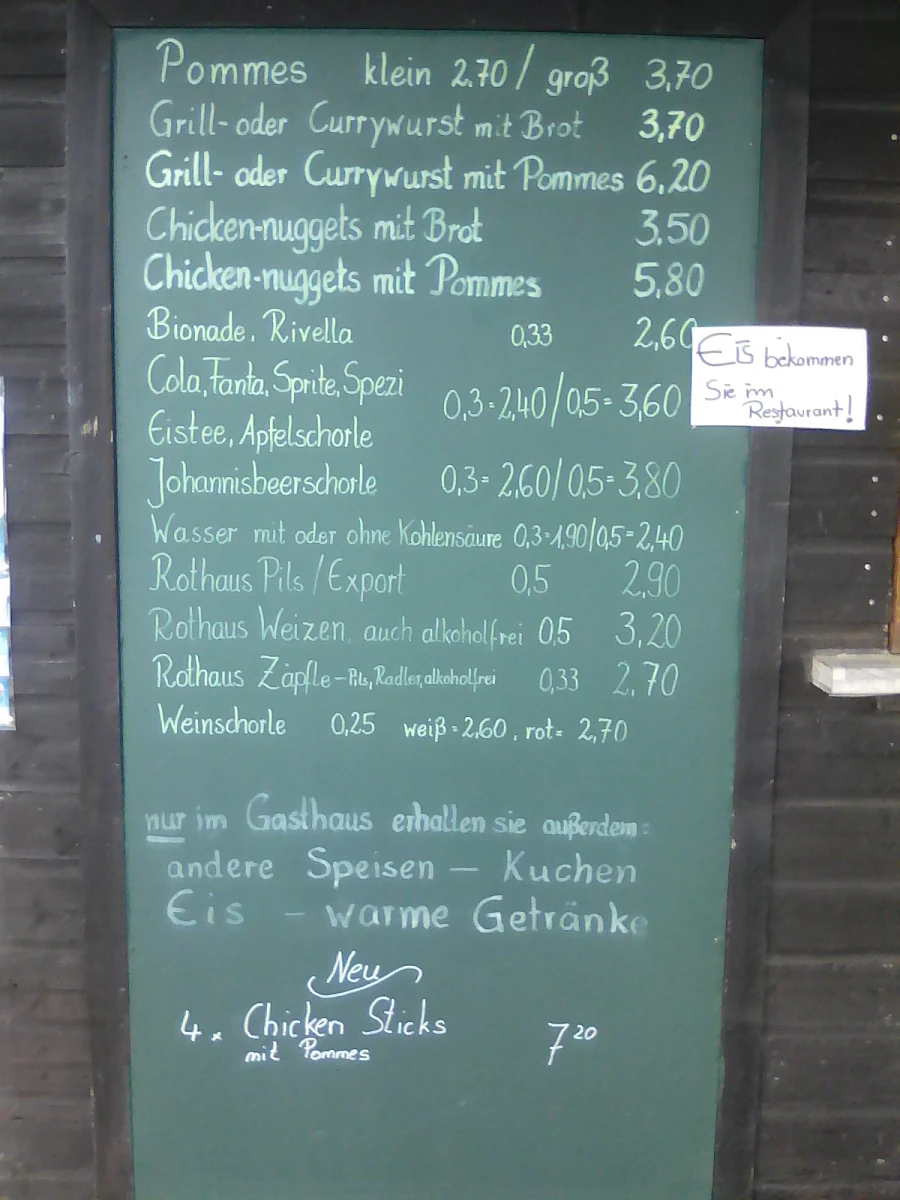 Pommes klein 2.70 / groß 3,70
Grill- oder Currywurst mit Brot 3,70
Grill- oder Currywurst mit Pommes 6,20
Chicken-nuggets mit Brot 3.50
Chicken-nuggets mit Pommes 5,80
Bionade, Rivella 0,33 2,60
Cola, Fanta, Sprite, Spezi
0,3=2,40/0,5=3,60
Eistee, Apfelschorle
Johannisbeerschorle 0,3=2,60/0,5=3,80
Wasser mit oder ohne Kohlensäure 0,3=1,90/0,5=2,40
Rothaus Pils / Export 0,5 2,90
Rothaus Weizen, auch alkoholfrei 0,5 3,20
Rothaus Zäpfle - Pils, Radler, alkoholfrei 0,33 2.70
Weinschorle 0,25 weiß=2,60, rot= 2,70
nur im Gasthaus erhalten sie außerdem:
andere Speisen — Kuchen
Eis - warme Getränke
Neu
4 x Chicken Sticks 7 20
mit Pommes
Eis bekommen
Sie im
Restaurant!